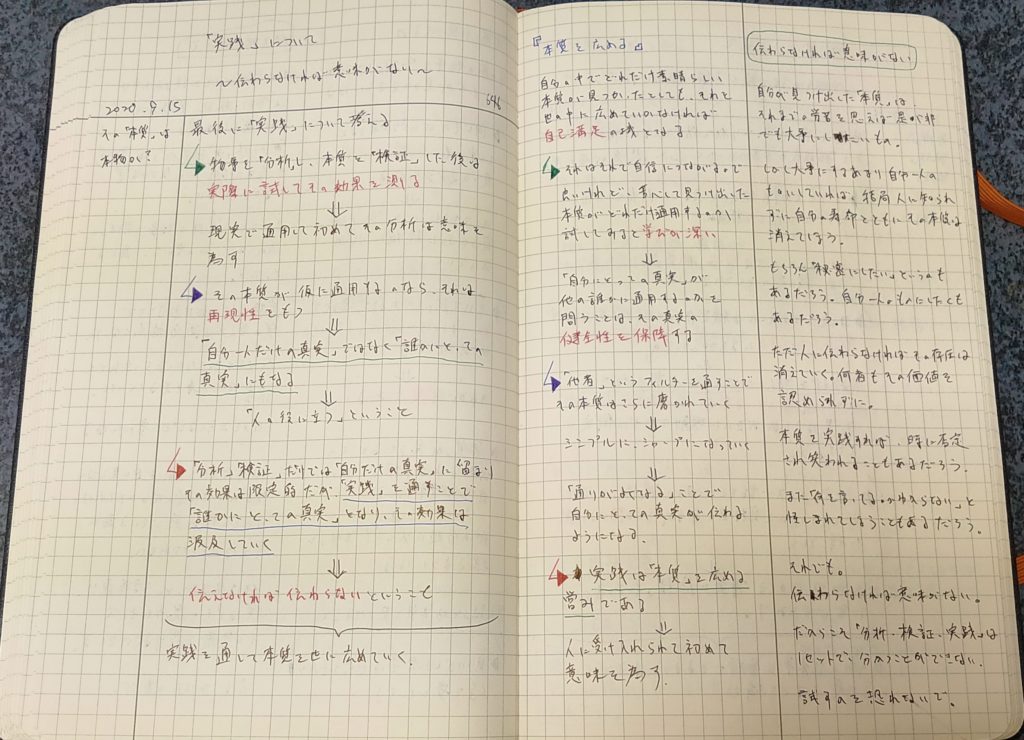 「実践」について
～伝わらなければ意味がない～
2020.9.15
646
その「本質」は
本物か？
最後に「実践」について考える
物事を「分析」し、本質を「検証」した後は
実際に試してその効果を測る
⇓
現実で通用して初めてその分析は意味を
為す
その本質が仮に通用するのなら、それは
再現性をもつ
⇓
「自分一人だけの真実」ではなく「誰かにとっての
真実」にもなる
⇓
「人の役に立つ」ということ
「分析」「検証」だけでは「自分だけの真実」に留まり
その効果は限定的だが、「実践」を通すことで
「誰かにとっての真実」となり、その効果は
波及していく
⇓
伝えなければ伝わらないということ
実践を通して本質を世に広めていく。
『本質を広める』
自分の中でどれだけ素晴らしい
本質が見つかったとしても、それを
世の中に広めていかなければ
自己満足の域となる
それはそれで自信につながるので
良いけれど、苦心して見つけ出した
本質がどれだけ通用するのか、
試してみると学びの深い
⇓
「自分にとっての真実」が
他の誰かに通用するのかを
問うことは、その真実の
健全性を保障する
「他者」というフィルターを通すことで
その本質はさらに磨かれていく
⇓
シンプルに、シャープになっていく
⇓
「通りがよくなる」ことで
自分にとっての真実が伝わる
ようになる。
実践は「本質」を広める
営みである
⇓
人に受け入れられて初めて
意味を為す。
伝わらなければ意味がない
自分が見つけ出した「本質」は、
それまでの労苦を思えば是が非
でも大事にしたいもの。
しかし大事にするあまり自分一人の
ものにしていれば、結局人に知られ
ずに自分の寿命とともにその本質は
消えてしまう。
もちろん「秘密にしたい」というのも
あるだろう。自分一人のものにしたくも
あるだろう。
ただ人に伝わらなければその存在は
消えていく。何者もその価値を
認められずに。
本質を実践すれば、時に否定
され笑われることもあるだろう。
また「何を言ってるのかわからない」と
怪しまれてしまうこともあるだろう。
それでも。
伝わらなければ意味がない。
だからこそ「分析・検証・実践」は
1セットで、分かつことができない。
試すのを恐れないで。